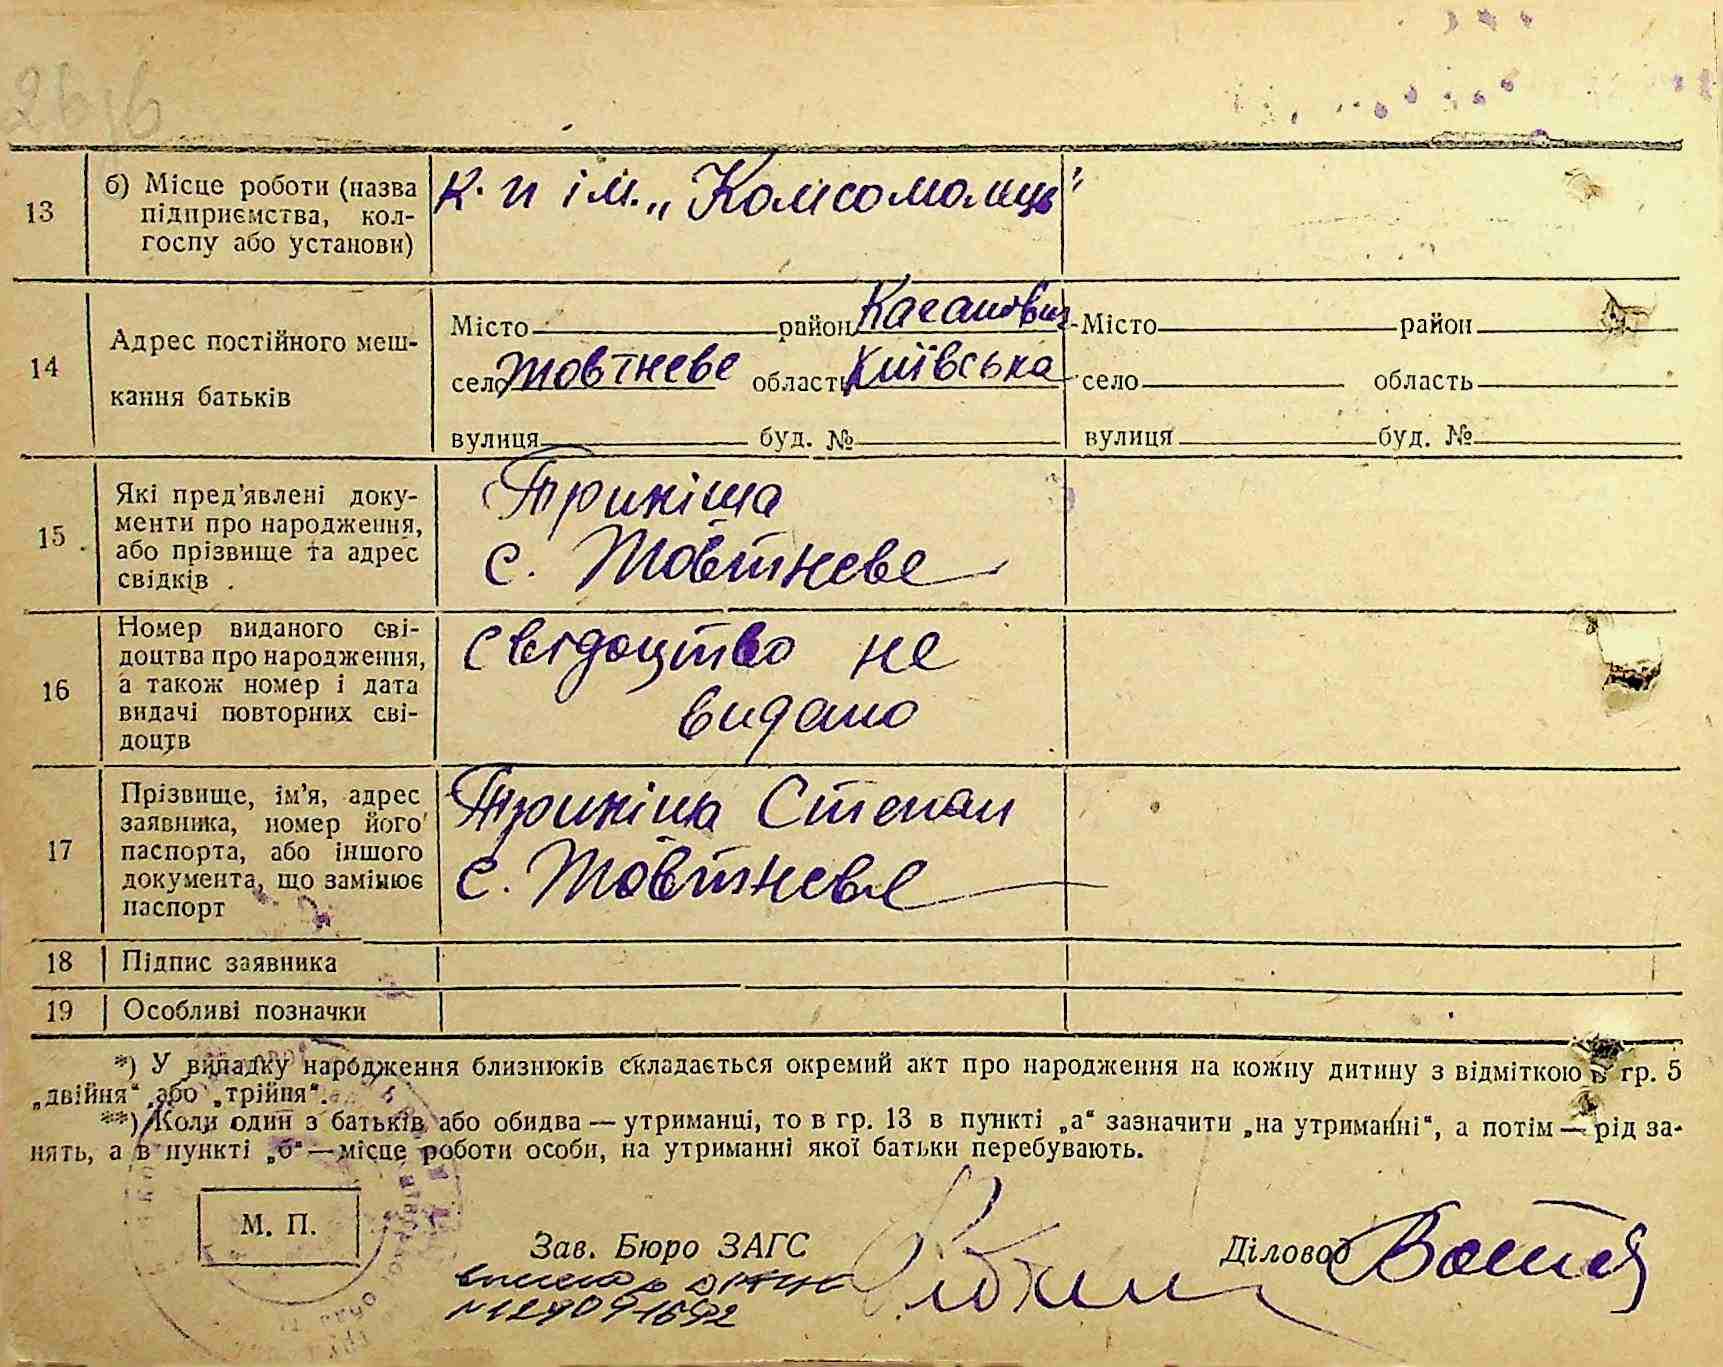 13 б) Місце роботи (назва підприємства, кол-госпу або установи) к. п ім. „Комсомолиць"
14 Адрес постійного меш-кання батьків
Місто район Каганович Місто район
село Жовтневе область Київська село область
вулиця буд. № вулиця буд. №
15 Які пред'явлені доку-менти про народження, або прізвище та адрес свідків
Триніша
с. Жовтневе
16 Номер виданого сві-доцтва про народження, а також номер і дата видачі повторних сві-доцтв
свідоцтво не
видано
17 Прізвище, ім'я, адрес заявника, номер його паспорта, або іншого документа, що замінює паспорт
Триніша Степан
с. Жовтневе
18 Підпис заявника
19 Особливі позначки
*) У випадку народження близнюків складається окремий акт про народження на кожну дитину з відміткою в гр. 5
„двійня“ або „трійня“.
**) Коли один з батьків або обидва — утриманці, то в гр. 13 в пункті „а“ зазначити „на утриманні“, а потім — рід за-
нять, а в пункті „б“ — місце роботи особи, на утриманні якої батьки перебувають.
М. П.
Зав. Бюро ЗАГС Діловод